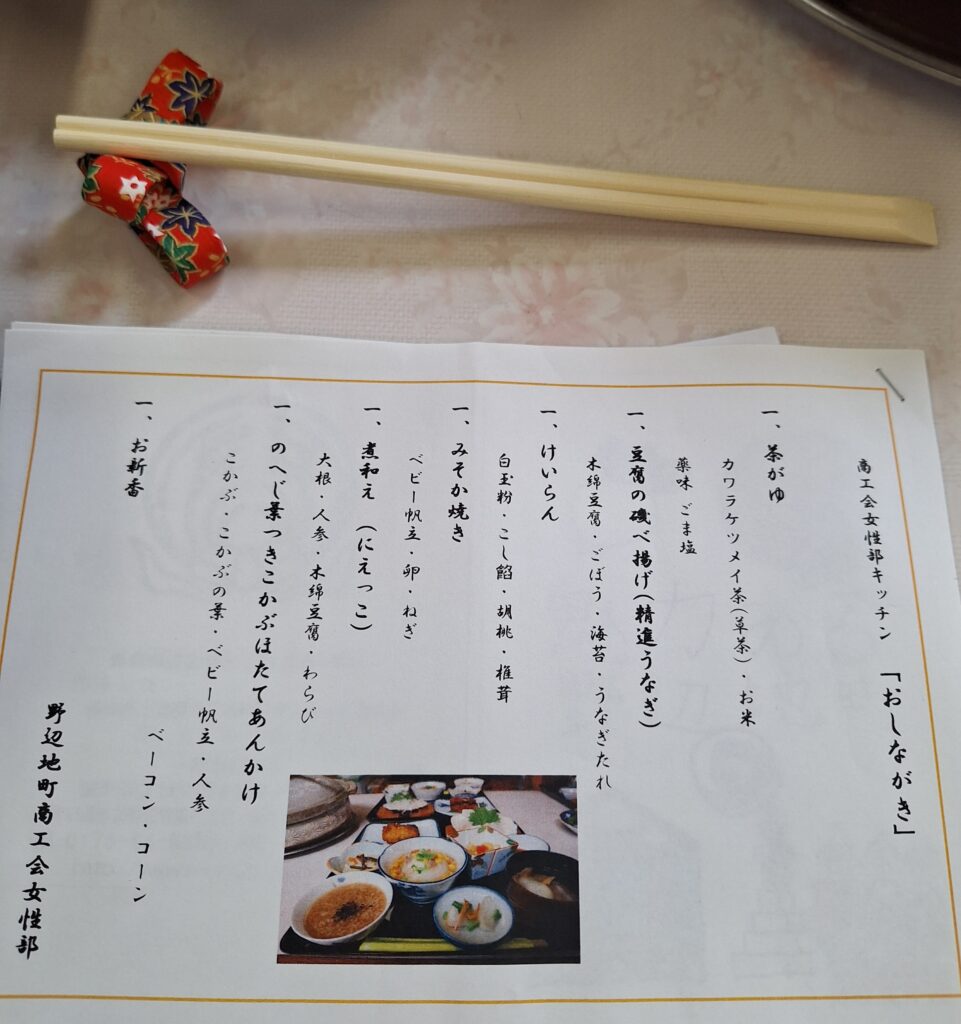 商工会女性部キッチン 「おしながき」
一、茶がゆ
カワラケツメイ茶(草茶)・お米
薬味 ごま塩
一、豆腐の磯べ揚げ(精進うなぎ)
木綿豆腐・ごぼう・海苔・うなぎたれ
一、けいらん
白玉粉・こし餡・胡桃・椎茸
一、みそか焼き
ベビー帆立・卵・ねぎ
一、煮和え (にえっこ)
大根・人参・木綿豆腐・わらび
一、のへじ葉つきこかぶほたてあんかけ
こかぶ・こかぶの葉・ベビー帆立・人参
ベーコン・コーン
一、お新香
野辺地町商工会女性部